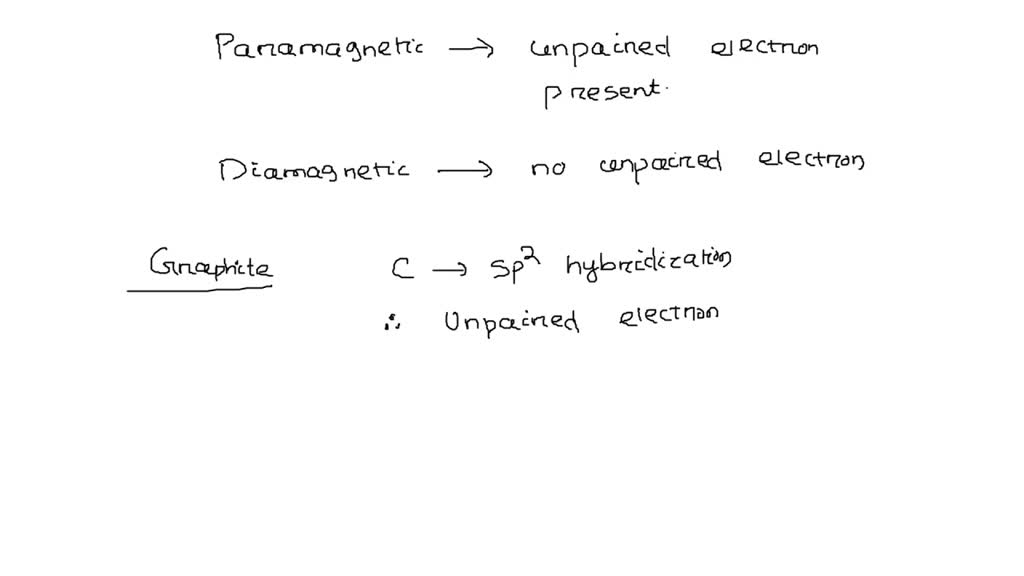 Paramagnetic → unpaired electron
present.
Diamagnetic → no unpaired electron
Graphite C → sp² hybridization
∴ Unpaired electron